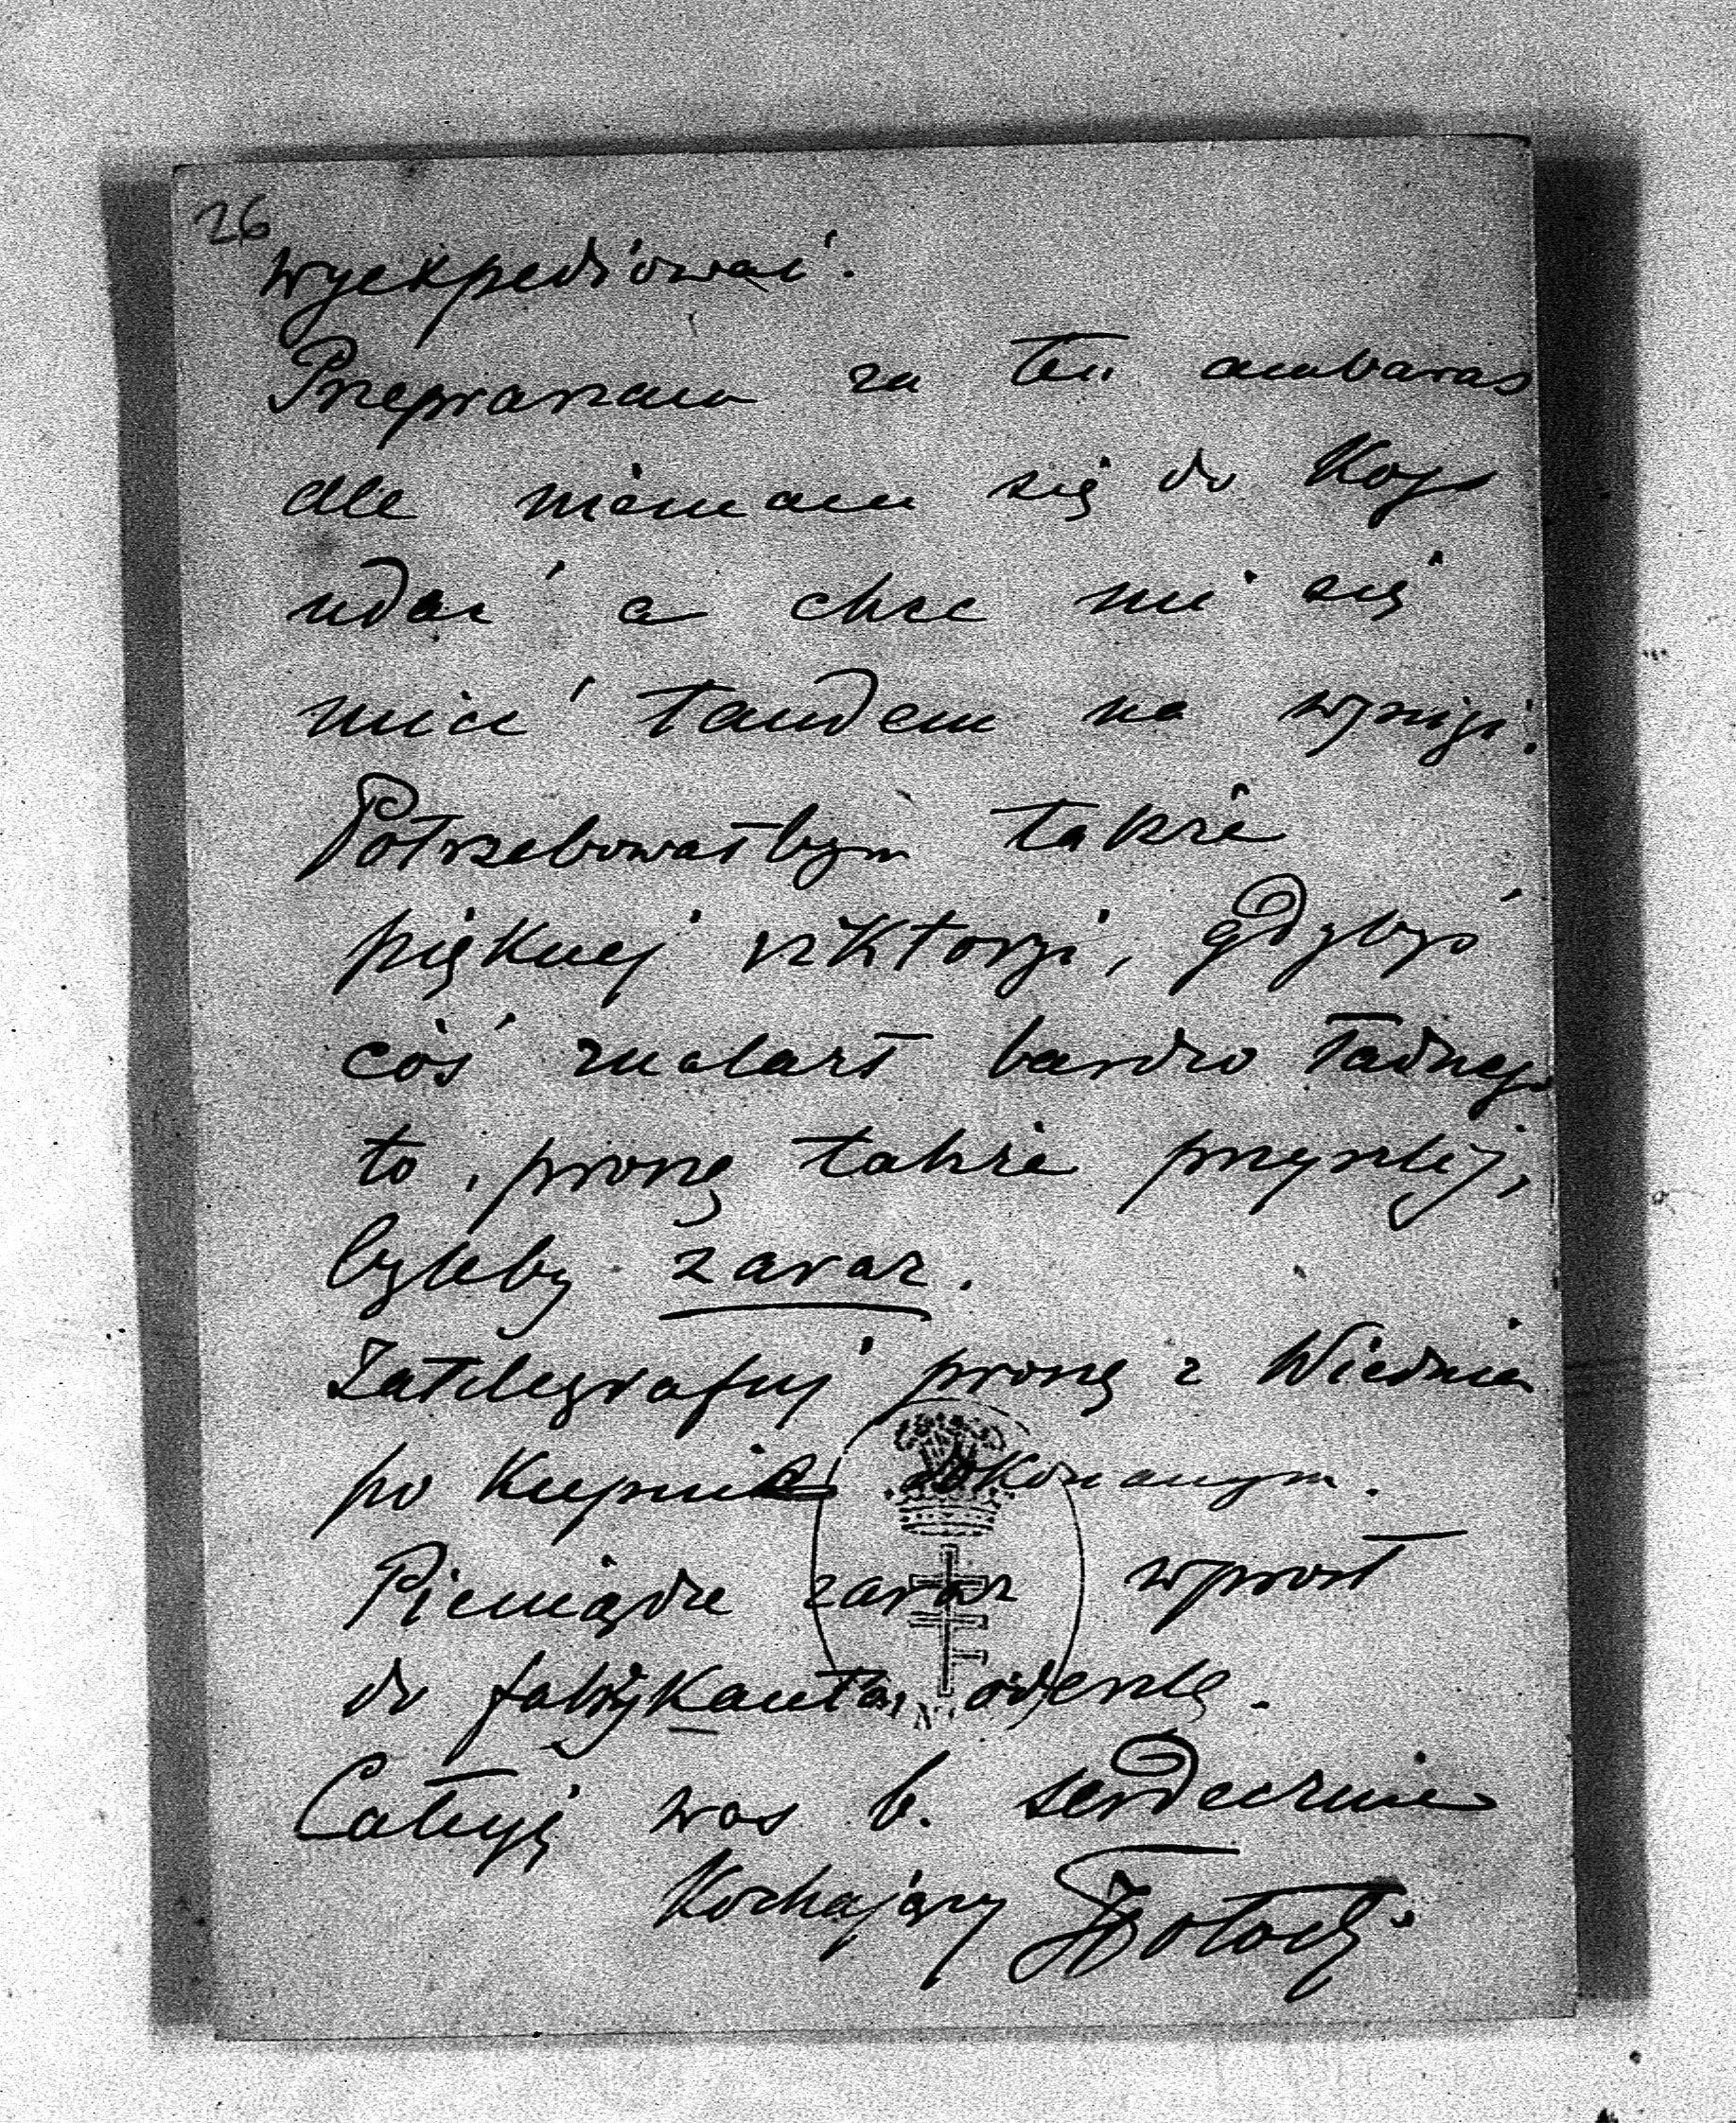 26
wyexpediować.
Przepraszam za ten ambaras
ale niemam się do kogo
udać a chce mi się
mieć tandem na wyścigi.
Potrzebowałbym także
pięknej viktorji, gdybyś
coś znalazł bardzo ładnego
to, proszę także przyszlij,
byleby zaraz.
Zatelegrafuj proszę z Wiednia
po kupnie dokonanym.
Pieniądze zaraz wprost
do fabrykanta odeszlę.
Całuję was b. serdecznie
Kochający